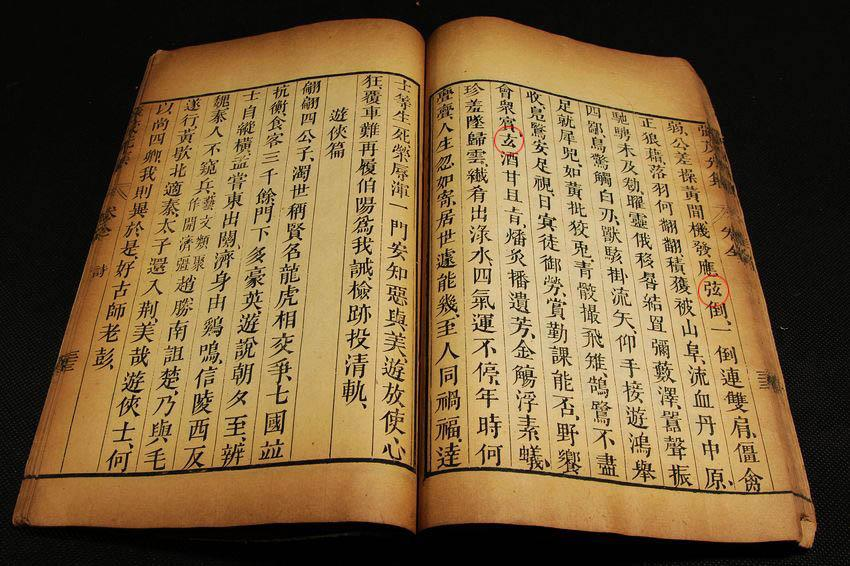 弱、公差操黃間、機發應弦倒、一倒連雙肩、僵禽
正狼藉、落羽何翩翩、積獲被山阜、流血丹中原、
馳騁未及勌、曜靈俄移晷、結罝彌藪澤、囂聲振
四鄙、鳥驚觸白刃、獸駭掛流矢、仰手接遊鴻、舉
足就犀兕、如黃批狡兔、青骹撮飛雉、鵠鷺不盡
收、鳧鷖安足視、日冥徒御勞、賞勤課能否、野饗
會衆賓、玄酒甘且旨、燔炙播遺芳、金觴浮素蟻、
珍羞墜歸雲、纖肴出淥水、四氣運不停、年時何
亹亹、人生忽如寄、居世遽能幾、至人同禍福、達
士等生死、榮辱渾一門、安知惡與美、遊放使心
狂、覆車難再履、伯陽爲我誡、檢跡投清軌、
遊俠篇
翩翩四公子、濁世稱賢名、龍虎相交爭、七國並
抗衡、食客三千餘、門下多豪英、遊說朝夕至、辨
士自縱橫、孟嘗東出關、濟身由鷄鳴、信陵西反
魏、秦人不窺兵、藝文類聚作開濟彊、趙勝南詛楚、乃與毛
遂行、黃歇北適秦、太子還入荆、美哉遊俠士、何
以尚四卿、我則異於是、好古師老彭、
詩